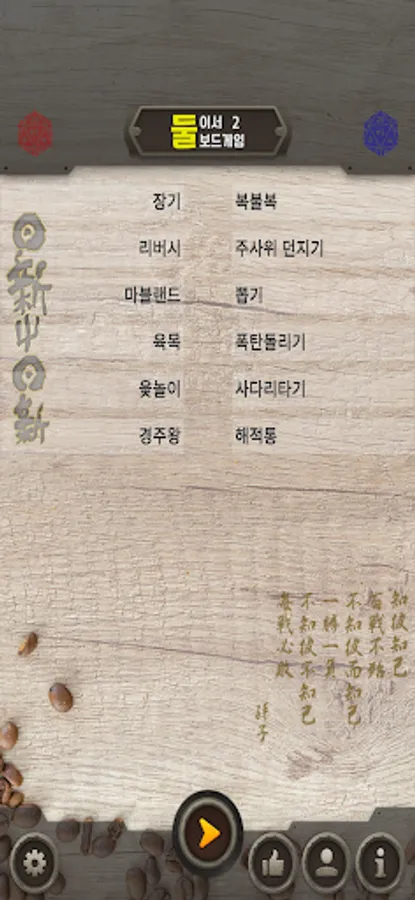 둘
이서 2
보드게임
장기
복불복
리버시
주사위 던지기
마블랜드
뽑기
육목
폭탄돌리기
윷놀이
사다리타기
경주왕
해적통
日新又日新
知彼知己
百戰不殆
不知彼而知己
一勝一負
不知彼不知己
每戰必敗
孫子